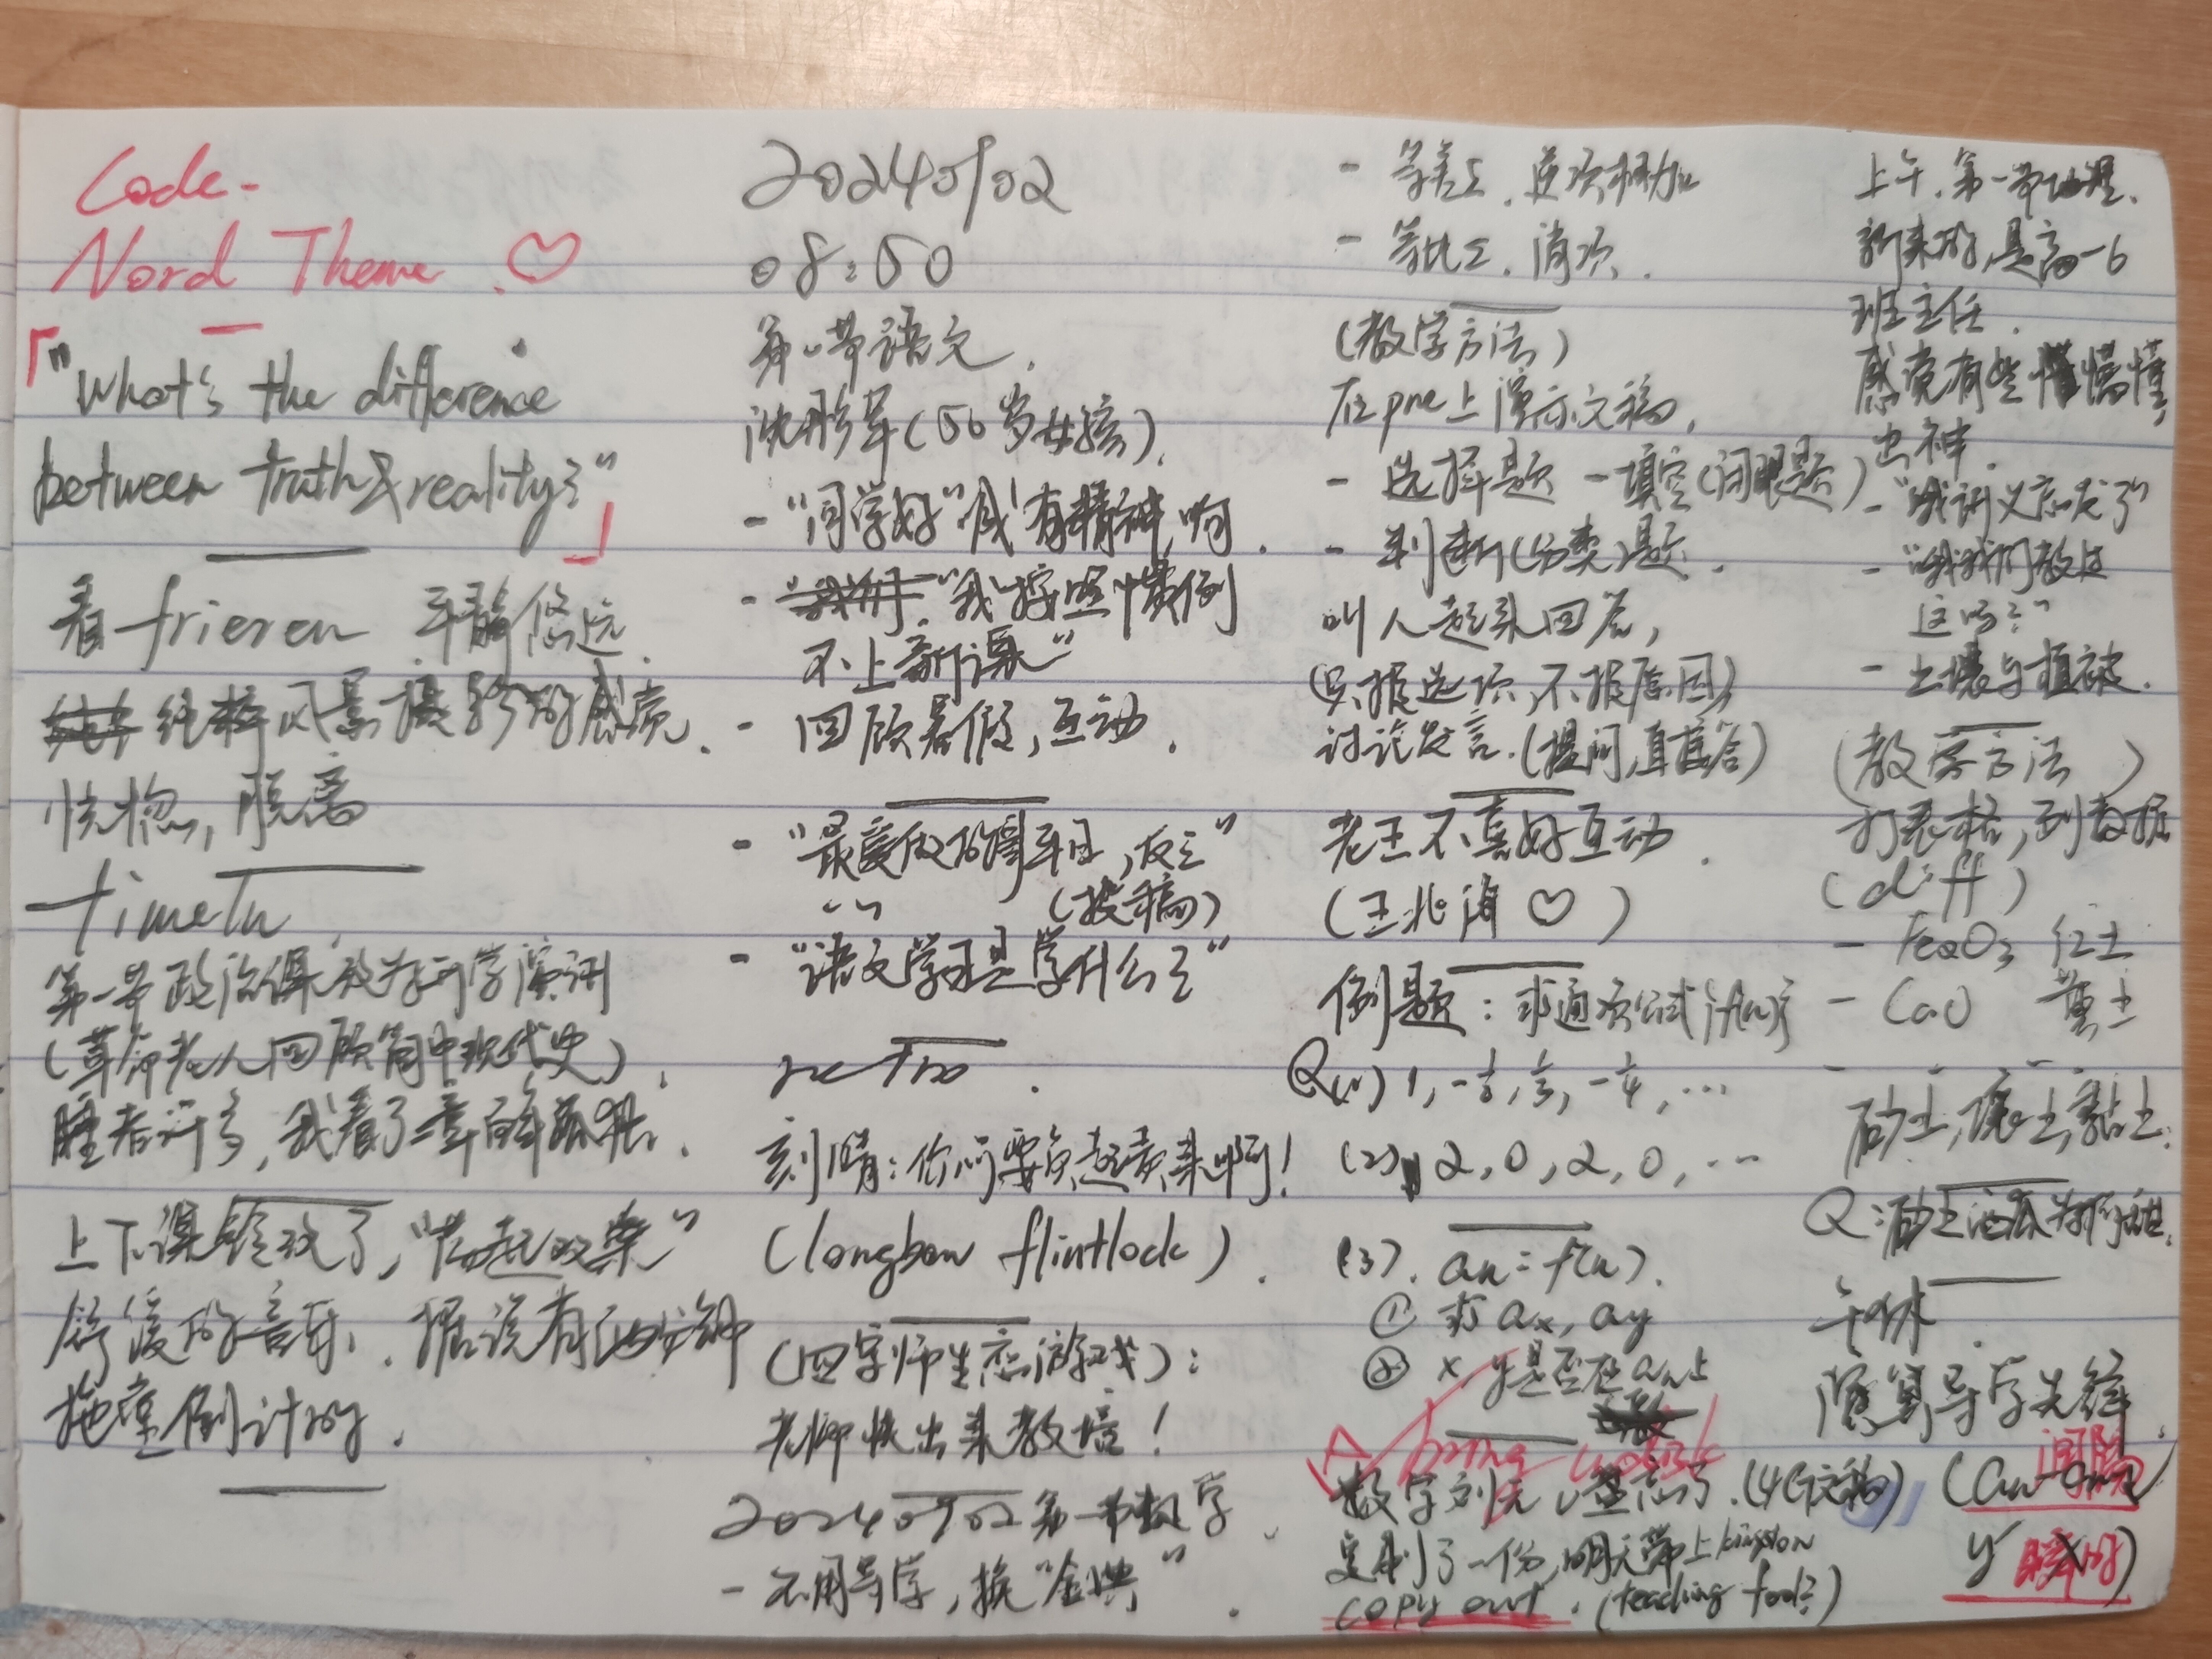 Code-
Nord Theme. ♡
「"What's the difference
between truth & reality?"」
看frieren 平静悠远.
纯粹风景摄影的感觉.
恍惚,脱离
timeTn
第一节政治课被为开学演讲
(革命老人回顾简中现代史).
睡者许多,我看了一章百年孤独.
上下课铃改了,"举起双桨"
舒缓的音乐.据说有两分钟
拖堂倒计时.
20240902
08:50
第一节语文.
沈彤军(56岁女孩).
- "同学好" "咸!有精神啊.
- "我按照惯例
不上新课"
- 回顾暑假,互动.
- "最爱做的 平日,反之"
(投稿)
- "语文学习是学什么?"
retro.
刻晴:你们要负起责来啊!
(longbow flintlock).
(四字师生恋游戏):
老师快出来教培!
20240902第一节数学.
- 不用导学,换"金典".
- 等差Σ.逐项相加
- 等比Σ.消项.
(教学方法)
在pne上演示文稿,
- 选择题 - 填空(闭眼题)
- 判断(分类)题.
叫人起来回答,
(只报选项,不报原因)
讨论发言.(提问,直接答)
老王不喜好互动.
(王北海♡)
例题:求通项公式{f(n)}
Q(1) 1, -1/2, 1/3, -1/4, …
(2) 2, 0, 2, 0, …
(3). an=f(n).
① 求ax, ay
② x y是否在an上
数字 忘了.(4G文稿)
复制了一份,明天带上kingston
copy out. (teaching tool?)
上午.第一节地理.
新来的,是高一6
班主任.
感觉有些懵懂,
出神.
- "哦讲义忘发了"
- "哦我们教过
这吗?"
- 土壤与植被.
(教学方法)
打表格,列数据
(diff)
- Fe2O3 红土
- CaO 黄土
- … …
砂土,壤土,黏土.
Q:砂土西瓜为何甜.
午休.
隐算导学先锋.
间隔
y x
瞬时